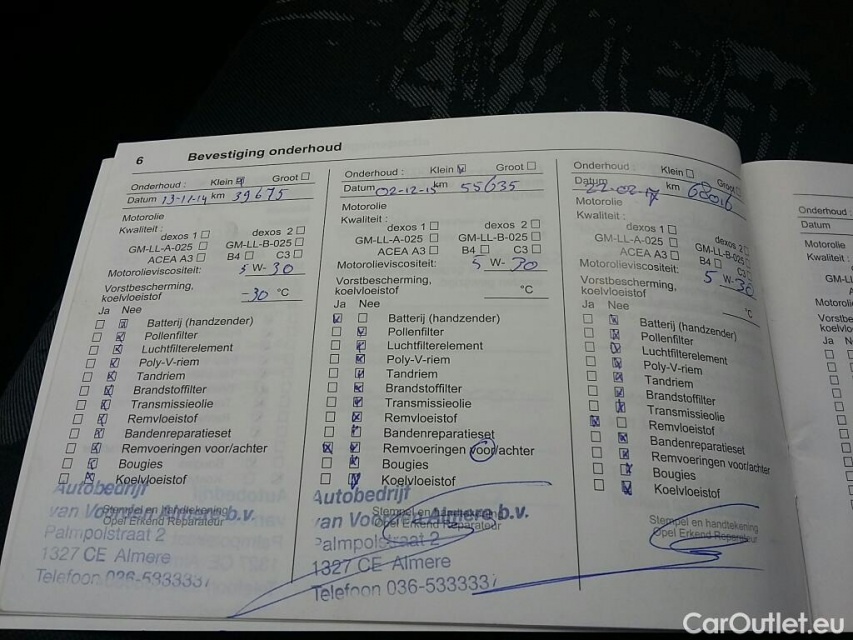 6 Bevestiging onderhoud
Onderhoud : Klein Groot
Datum 13-11-14 km 39675
Motorolie
Kwaliteit :
dexos 1 dexos 2
GM-LL-A-025 GM-LL-B-025
ACEA A3 B4 C3
Motorolieviscositeit: 5 W- 30
Vorstbescherming,
koelvloeistof -30 °C
Ja Nee
Batterij (handzender)
Pollenfilter
Luchtfilterelement
Poly-V-riem
Tandriem
Brandstoffilter
Transmissieolie
Remvloeistof
Bandenreparatieset
Remvoeringen voor/achter
Bougies
Koelvloeistof
Autobedrijf
Stempel en handtekening
van Voorden Almere b.v.
Opel Erkend Reparateur
Palmpolstraat 2
1327 CE Almere
Telefoon 036-5333337
Onderhoud : Klein Groot
Datum 02-12-15 km 55635
Motorolie
Kwaliteit :
dexos 1 dexos 2
GM-LL-A-025 GM-LL-B-025
ACEA A3 B4 C3
Motorolieviscositeit: 5 W- 30
Vorstbescherming,
koelvloeistof °C
Ja Nee
Batterij (handzender)
Pollenfilter
Luchtfilterelement
Poly-V-riem
Tandriem
Brandstoffilter
Transmissieolie
Remvloeistof
Bandenreparatieset
Remvoeringen voor/achter
Bougies
Koelvloeistof
Autobedrijf
Stempel en handtekening
van Voorden Almere b.v.
Opel Erkend Reparateur
Palmpolstraat 2
1327 CE Almere
Telefoon 036-5333337
Onderhoud : Klein Groot
Datum 22-02-17 km 68016
Motorolie
Kwaliteit :
dexos 1 dexos 2
GM-LL-A-025 GM-LL-B-025
ACEA A3 B4 C3
Motorolieviscositeit: 5 W- 30
Vorstbescherming,
koelvloeistof °C
Ja Nee
Batterij (handzender)
Pollenfilter
Luchtfilterelement
Poly-V-riem
Tandriem
Brandstoffilter
Transmissieolie
Remvloeistof
Bandenreparatieset
Remvoeringen voor/achter
Bougies
Koelvloeistof
Stempel en handtekening
Opel Erkend Reparateur
Onderhoud :
Datum
Motorolie
Kwaliteit :
Ja
CarOutlet.eu